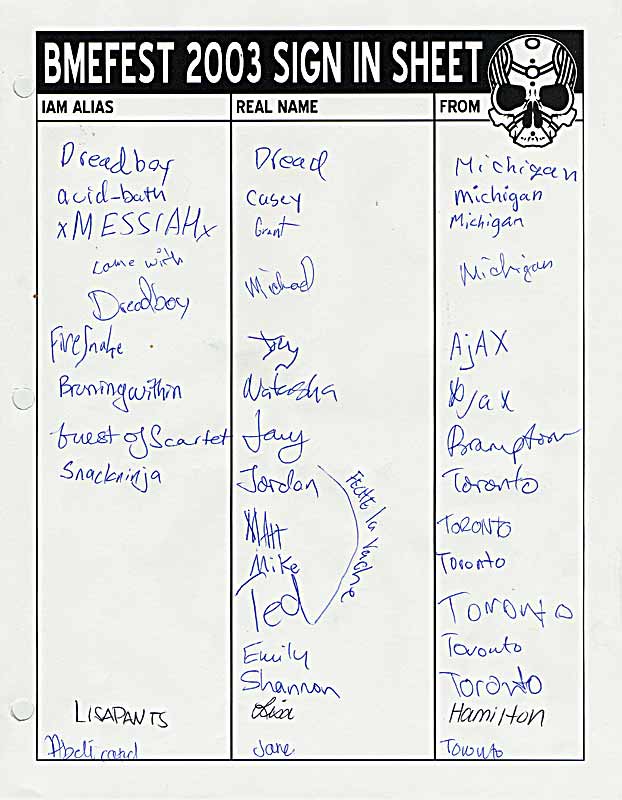 BMEFEST 2003 SIGN IN SHEET
IAM ALIAS REAL NAME FROM
Dreadboy Dread Michigan
acid-bath Casey Michigan
xMESSIAHx Grant Michigan
came with
Dreadboy Michael Michigan
Firesnake AjAX
Burningwithin Natasha Ajax
Guest of Scarlet Jay Brampton
Snackninja Jordan Toronto
Fecite la vache
Matt TORONTO
Mike Toronto
Ted Toronto
Emily Toronto
Shannon Toronto
LISAPANTS Lisa Hamilton
Jane Toronto